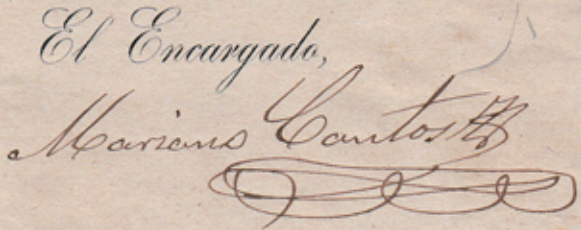 El Encargado,
Mariano Cantos